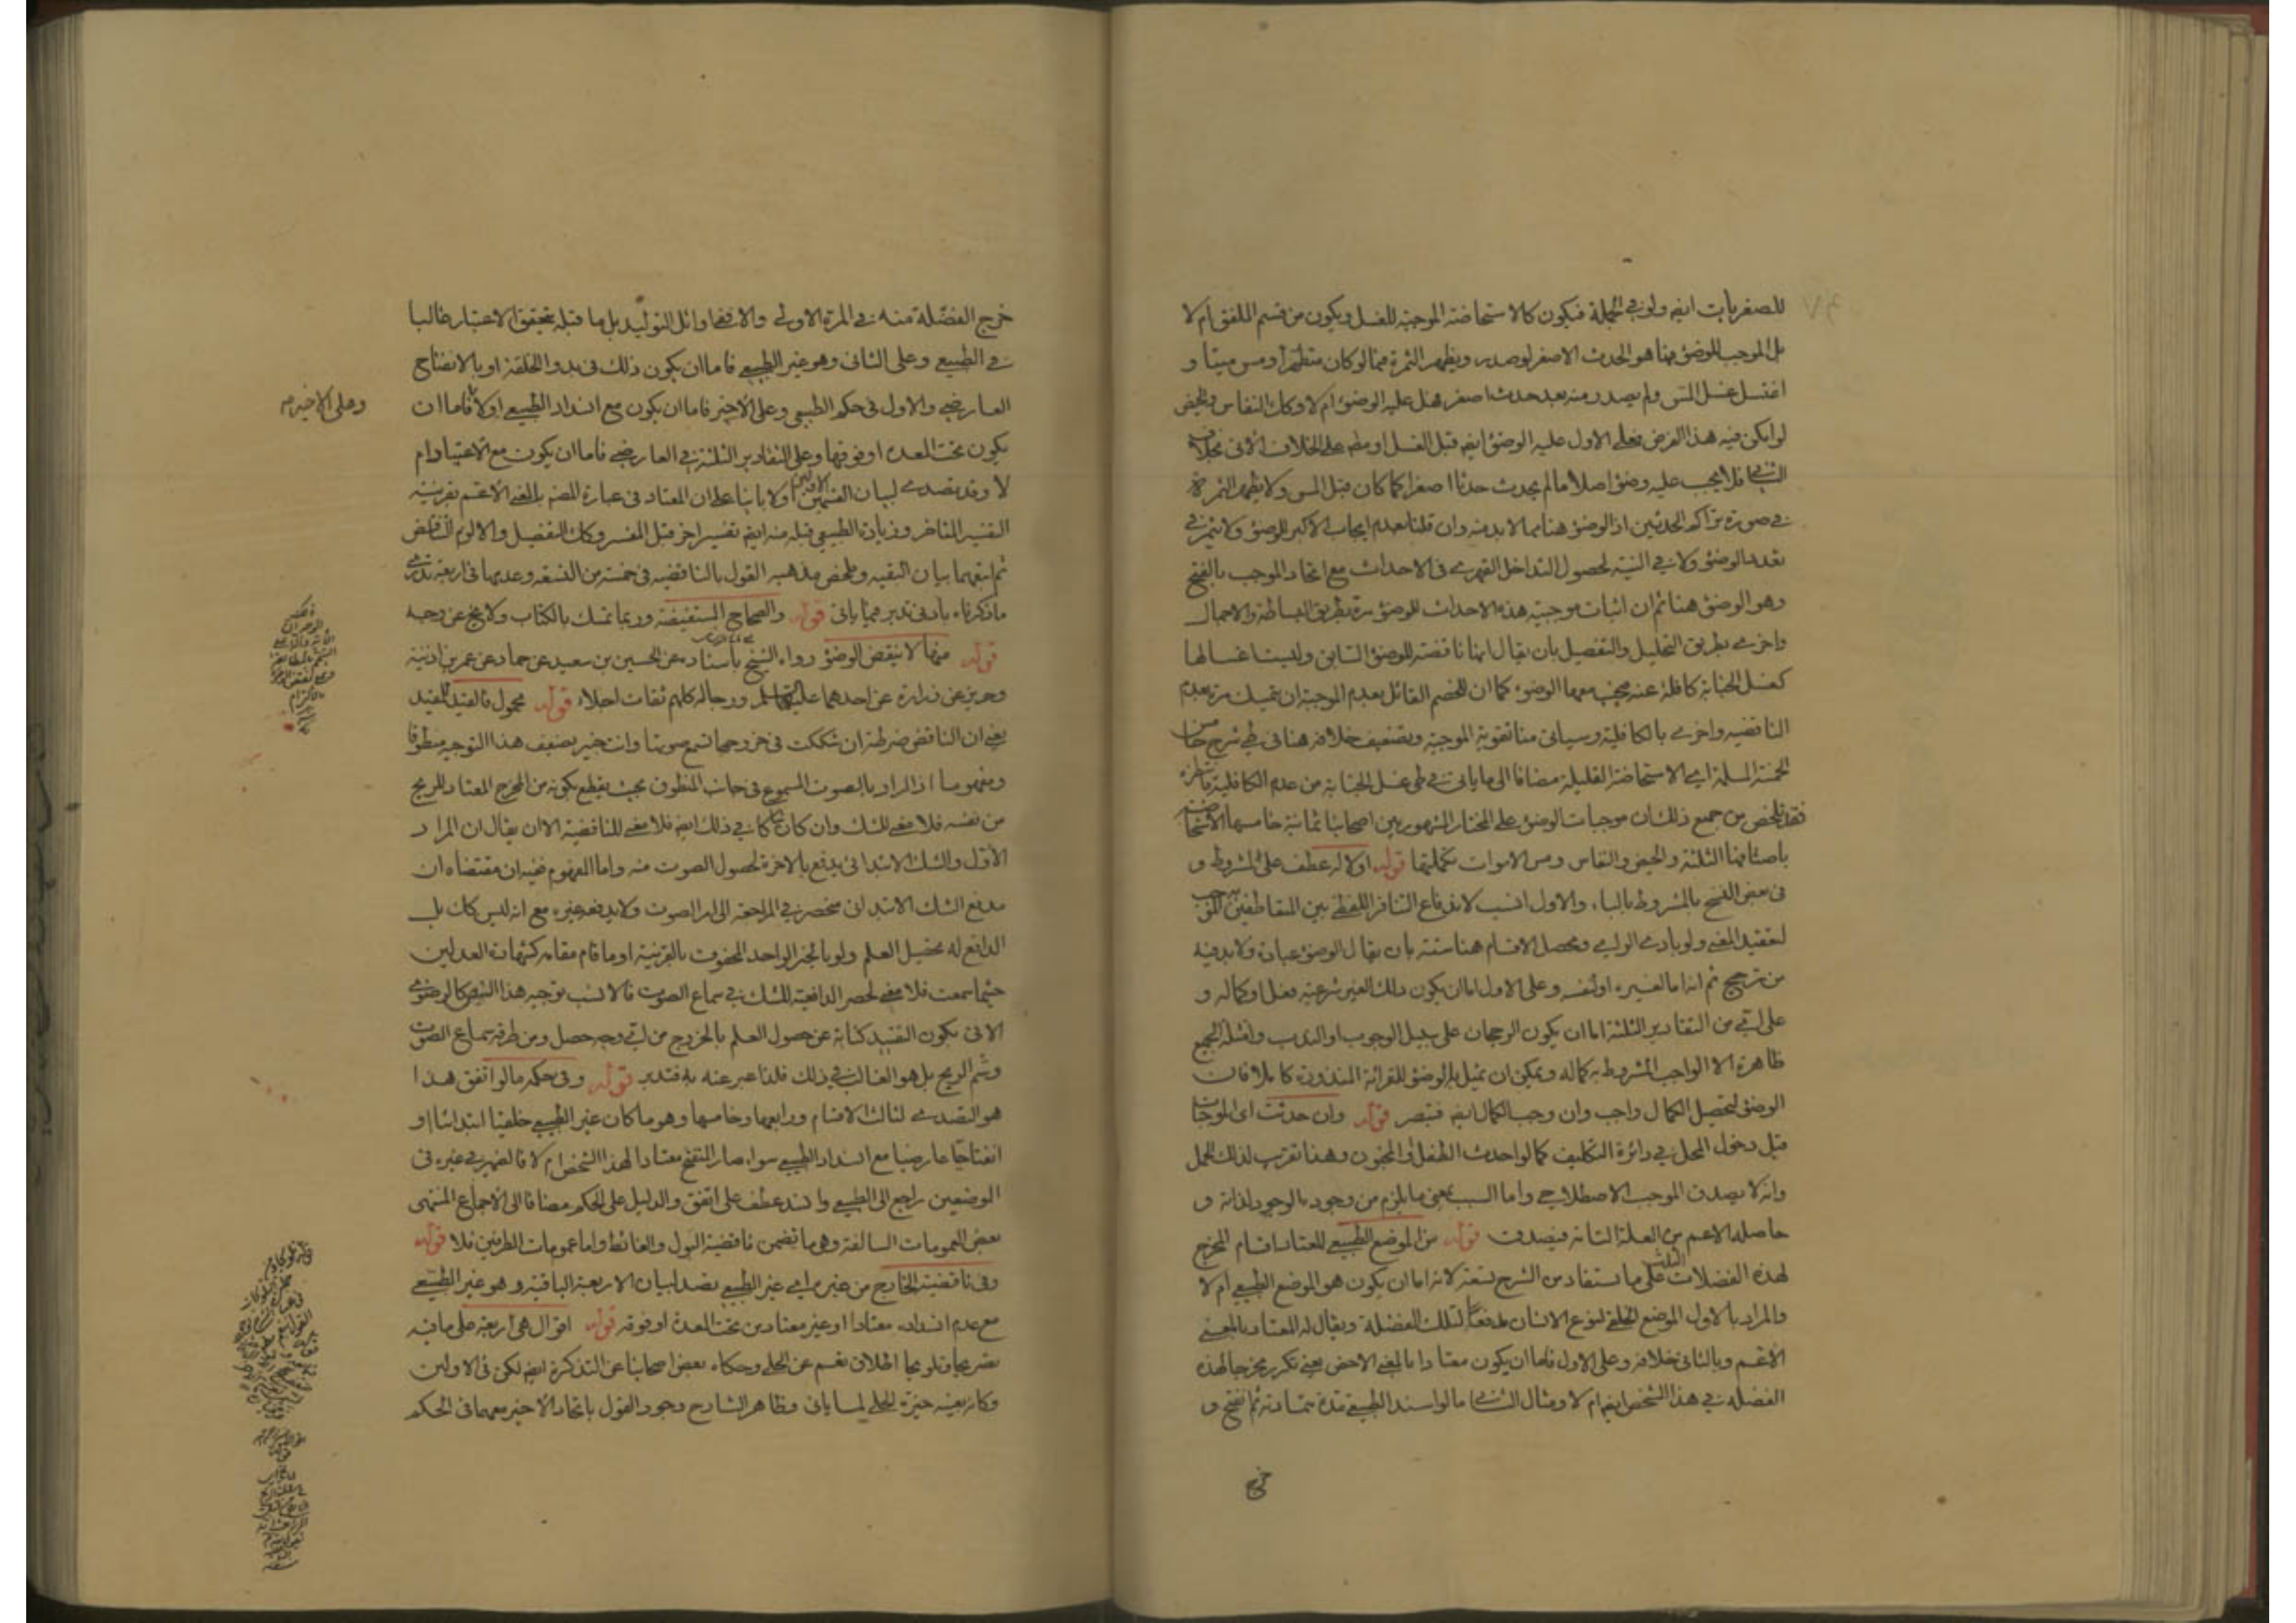 للصغريات ايضا ولو في الجملة فيكون كالاستحاضة الموجبة للغسل ويكون من قسم الملفق ام لا
بل الموجب للوضوء هنا هو الحدث الاصغر لو صدر ويظهر الثمرة فيما لو كان متطهرا ومس ميتا و
اغتسل غسل المس ولم يصدر منه بعد حدث اصغر هل عليه الوضوء ام لا وكان النفاس والحيض
لو امكن فيه هذا الفرض فعلى الاول عليه الوضوء ايضا قبل الغسل او مطم على الخلاف الاتي بخلاف
الثاني فلا يجب عليه وضوء اصلا ما لم يحدث حدثا اصغر كما كان قبل المس ولا يظهر الثمرة
في صورة تراكم الحدثين اذ الوضوء هنا مما لا بد منه وان قلنا بعدم ايجاب الاكبر للوضوء ولا يثمر في
تعدد الوضوء ولا في النية لحصول التداخل القهري في الاحداث مع اتحاد الموجب بالفتح
وهو الوضوء هنا ثم ان اثبات موجبية هذه الاحداث للوضوء مرة بطريق البساطة والاجمال
واخرى بطريق التحليل والتفصيل بان يقال انها ناقضة للوضوء السابق وليست اغسالها
كغسل الجنابة كافلة عنه فيجب معها الوضوء كما ان للخصم القائل بعدم الموجبية ان يتمسك مرة بعدم
الناقضية واخرى بالكافلية وسياتي منا تقوية الموجبية وتضعيف خلافه هنا في طي شرح خامس
الخمسة المسلمة اي الاستحاضة القليلة مضافا الى ما ياتي في طي غسل الجنابة من عدم الكافلية
فقد تلخص من جميع ذلك ان موجبات الوضوء على المختار المشهور بين اصحابنا ثمانية خامسها الاستحاضة
باصنافها الثلثة والحيض والنفاس ومس الاموات تكملتها قوله او لا له عطف على المشروط و
في بعض النسخ بالمشروط بالباء والاول انسب لاندفاع التنافر اللفظي بين المتعاطفين
لتعقيد المعنى ولو بادي الراي ومحصل الاقسام هنا ستة بان يقال الوضوء عبادة ولا بد فيه
من ترجيح ثم انه اما لغيره او لنفسه وعلى الاول اما ان يكون ذلك الغير شرعية فعل او كماله و
على اي من التقادير الثلثة اما ان يكون الرجحان على سبيل الوجوب او الندب وامثلة الجميع
ظاهرة الا الواجب المشروط به كماله ويمكن ان يمثل له بالوضوء للقرائة المنذورة كاملا فان
الوضوء لتحصيل الكمال واجب وان وجب الكمال ايضا فتبصر قوله وان حدثت اي الموجبات
قبل دخول المحل في دائرة التكليف كما لو احدث الطفل او المجنون وهذا تقريب لذلك الحمل
وانه لا يصدق الموجب الاصطلاحي واما السبب بمعنى ما يلزم من وجوده الوجود لذاته و
حاصله الاعم من العلة التامة فيصدق قوله من الموضع الطبيعي للمعتاد اقسام المخرج
لهذه الفضلات الثلث على ما يستفاد من الشرح تسعة لانه اما ان يكون هو الموضع الطبيعي ام لا
والمراد بالاول الموضع الخلقي لنوع الانسان مدفعا لتلك الفضلة ويقال له المعتاد بالمعنى
الاعم وبالثاني خلافه وعلى الاول فاما ان يكون معتادا بالمعنى الاخص يعني تكرر خروج هذه
الفضلة في هذا الشخص ايضا ام لا ومثال الثاني ما لو انسد الطبيعي مدة متمادية ثم انفتح و
خرج
خرج الفضلة منه في المرة الاولى والا ففي اوائل التوليد بل ما قبله يتحقق الاعتبار غالبا
في الطبيعي وعلى الثاني وهو غير الطبيعي فاما ان يكون ذلك في بدو الخلقة او بالانفتاح
العارضي والاول في حكم الطبيعي وعلى الاخير فاما ان يكون مع انسداد الطبيعي اولا فاما ان
وعلى الاخير م
يكون تحت المعدة او فوقها وعلى التقادير الثلثة في العارضي فاما ان يكون مع الاعتياد ام
لا وقد تصدى لبيان القسمين الاولين اولا بانيا على ان المعتاد في عبارة المصنف بالمعنى الاعم بقرينة
التفسير المتاخر وزيادة الطبيعي قبله منه ايضا تفسير اخر قبل المفسر وكان التفصيل والا لزم التناقض
ثم اتبعهما بيان البقية وملخص مذهبه القول بالناقضية في خمسة من التسعة وعدمها في اربعة تدري
ما ذكرناه بادنى تدبر فيما ياتي قوله والصحاح المستفيضة وربما تمسك بالكتاب ولا يخ عن وجه
قوله منها لا ينقض الوضوء رواه الشيخ باسناده عن الحسين بن سعيد عن حماد عن عمر بن اذينة
وحريز عن زرارة عن احدهما عليهما السلم ورجاله كلهم ثقات اجلاء قوله محمول فالقيد للمقيد
يعني ان الناقض ضرطة ان شككت في خروجها تسمع صوتها وانت خبير بضعف هذا التوجيه منطوقا
ومفهوما اذ المراد بالصوت المسموع في جانب المنطوق بحيث يقطع بكونه من المخرج المعتاد للريح
من نفسه فلا معنى للشك وان كان شاكا في ذلك ايضا فلا معنى للناقضية الا ان يقال ان المراد
الاول والشك الابتدائي يدفع بالاخرة لحصول الصوت منه واما المفهوم فيه ان مقتضاه ان
مدفع الشك الابتدائي منحصر في المراجعة الى امر الصوت ولا يدفعه غيره مع انه ليس كك بل
الدافع له تحصيل العلم ولو بالخبر الواحد المحفوف بالقرينة او ما قام مقامه كشهادة العدلين
حيثما سمعت فلا معنى لحصر الدافعية للشك في سماع الصوت فالانسب توجيه هذا النص كالرضوي
الاتي بكون التقييد كناية عن حصول العلم بالخروج من اي وجه حصل ومن طرقه سماع الصوت
وشم الريح بل هو الغالب في ذلك فلذا عبر عنه به فتدبر قوله وفي حكمه ما لو اتفق هذا
هو التصدي لثالث الاقسام ورابعها وخامسها وهو ما كان غير الطبيعي خلقيا ابتدائيا او
انفتاحيا عارضيا مع انسداد الطبيعي سواء صار المنفتح معتادا لهذا الشخص ام لا فالضمير في غيره في
الوضعين راجع الى الطبيعي وانسد عطف على اتفق والدليل على الحكم مضافا الى الاجماع المنتهى
بعض العمومات السالفة وهي ما تضمن ناقضية البول والغائط واما عمومات الطرفين فلا قوله
وفي ناقضية الخارج من غيره اي غير الطبيعي تصد لبيان الاربعة الباقية وهو غير الطبيعي
مع عدم انسداده معتادا او غير معتاد من تحت المعدة او فوقه قوله اقوال هي اربعة على ما فيه
تصريحا وتلويحا اطلاق نعم عن الحلي وحكاه بعض اصحابنا عن التذكرة ايضا لكن في الاولين
وكانه بعينه خيرة الحلي لما ياتي وظاهر الشارح وجود القول باتحاد الاخير معهما في الحكم